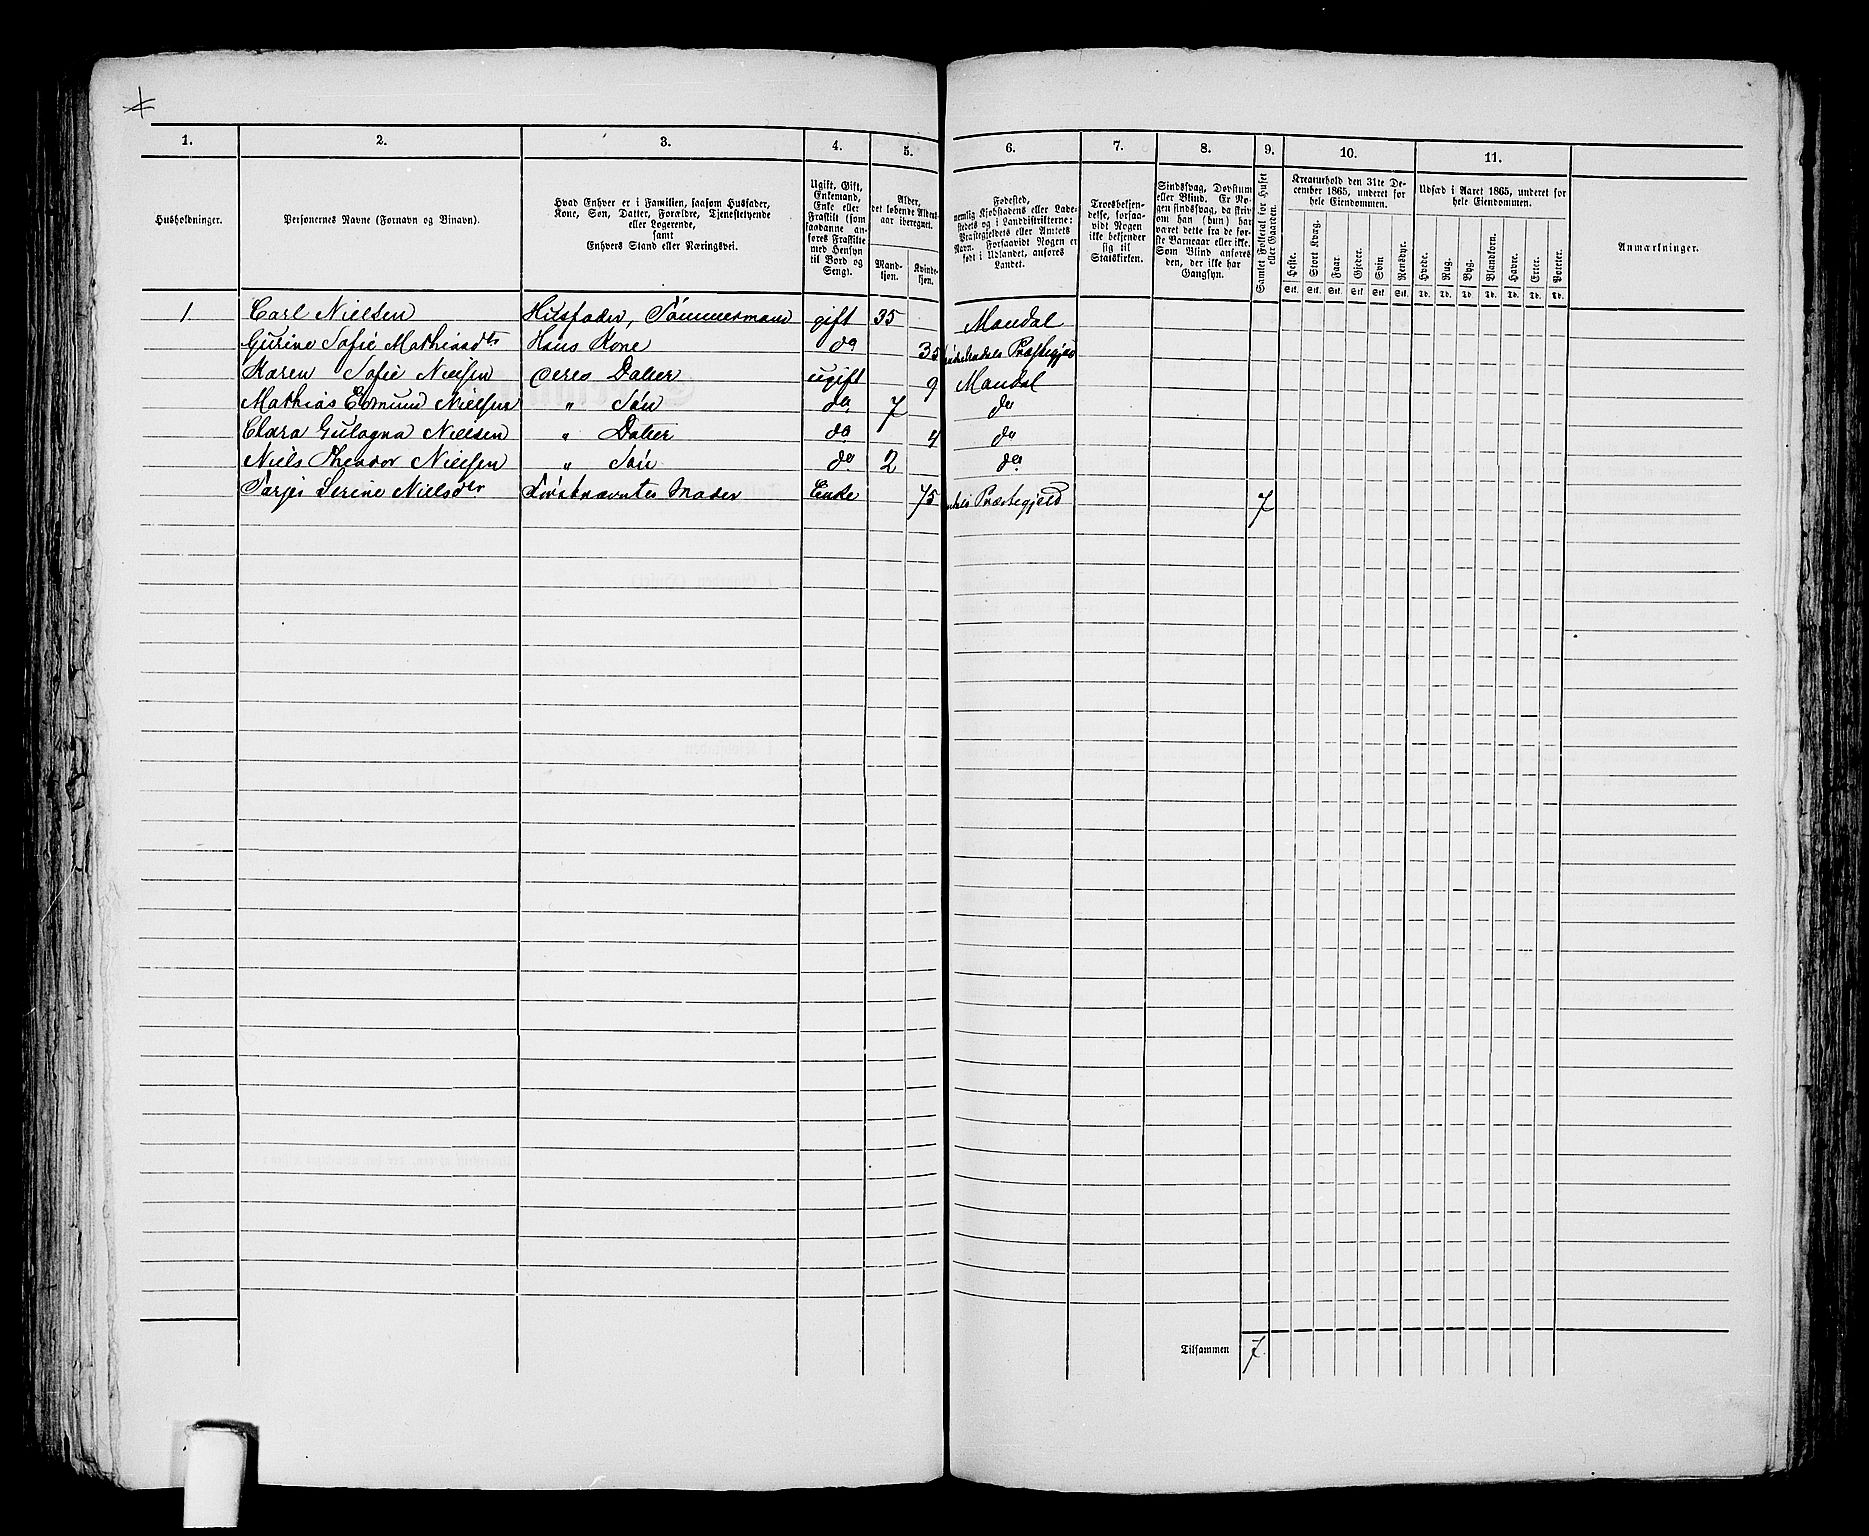 1. 2. 3. 4. 5. 6. 7. 8. 9. 10. 11.
Husholdninger.
Personernes Navne (Fornavn og Binavn).
Hvad Enhver er i Familien, saasom Husfader,
Kone, Søn, Datter, Forældre, Tjenestetyende
eller Logerende,
samt
Enhvers Stand eller Næringsvei.
Ugift, Gift,
Enkemand,
Enke eller
Fraskilt (som
saadanne an-
føres Fraskilte
med Hensyn
til Bord og
Seng).
Alder,
det løbende Alders-
aar iberegnet.
Mand-
kjøn.
Kvinde-
kjøn.
Fødested,
nemlig Kjøbstadens eller Lade-
stedets og i Landdistrikterne:
Præstegjeldets eller Amtets
Navn. Forsaavidt Nogen er
født i Udlandet, anføres
Landet.
Troesbekjen-
delse, forsaa-
vidt Nogen
ikke bekjender
sig til
Statskirken.
Sindssvag, Døvstum
eller Blind. Er No-
gen sindssvag, da skriv
om han (hun) har
været dette fra de før-
ste Barneaar eller ikke.
Som Blind anføres
den, der ikke har
Gangsyn.
Samlet Folketal for Huset
eller Gaarden.
Kreaturhold den 31te De-
cember 1865, underet for
hele Eiendommen.
Heste. Stort Kvæg. Faar. Gjeder. Svin. Rensdyr.
Stk. Stk. Stk. Stk. Stk. Stk.
Udsæd i Aaret 1865, underet for
hele Eiendommen.
Hvede. Rug. Byg. Blandkorn. Havre. Erter. Poteter.
Td. Td. Td. Td. Td. Td. Td.
Anmærkninger.
1 Carl Nielsen Husfader, Tømmermand gift 35 Mandal
Gurine Sofie Mathiasdtr Hans Kone do 35 Præstegjeld
Karen Sofie Nielsen deres Datter ugift 9 Mandal
Mathias Edmund Nielsen " Søn do 7 do
Clara Gulagna Nielsen " Datter do 4 do
Niels Theodor Nielsen " Søn do 2 do
Tarjer Serine Nielsdtr Førstnævntes Moder Enke 75 Præstegjeld 7
Tilsammen 7